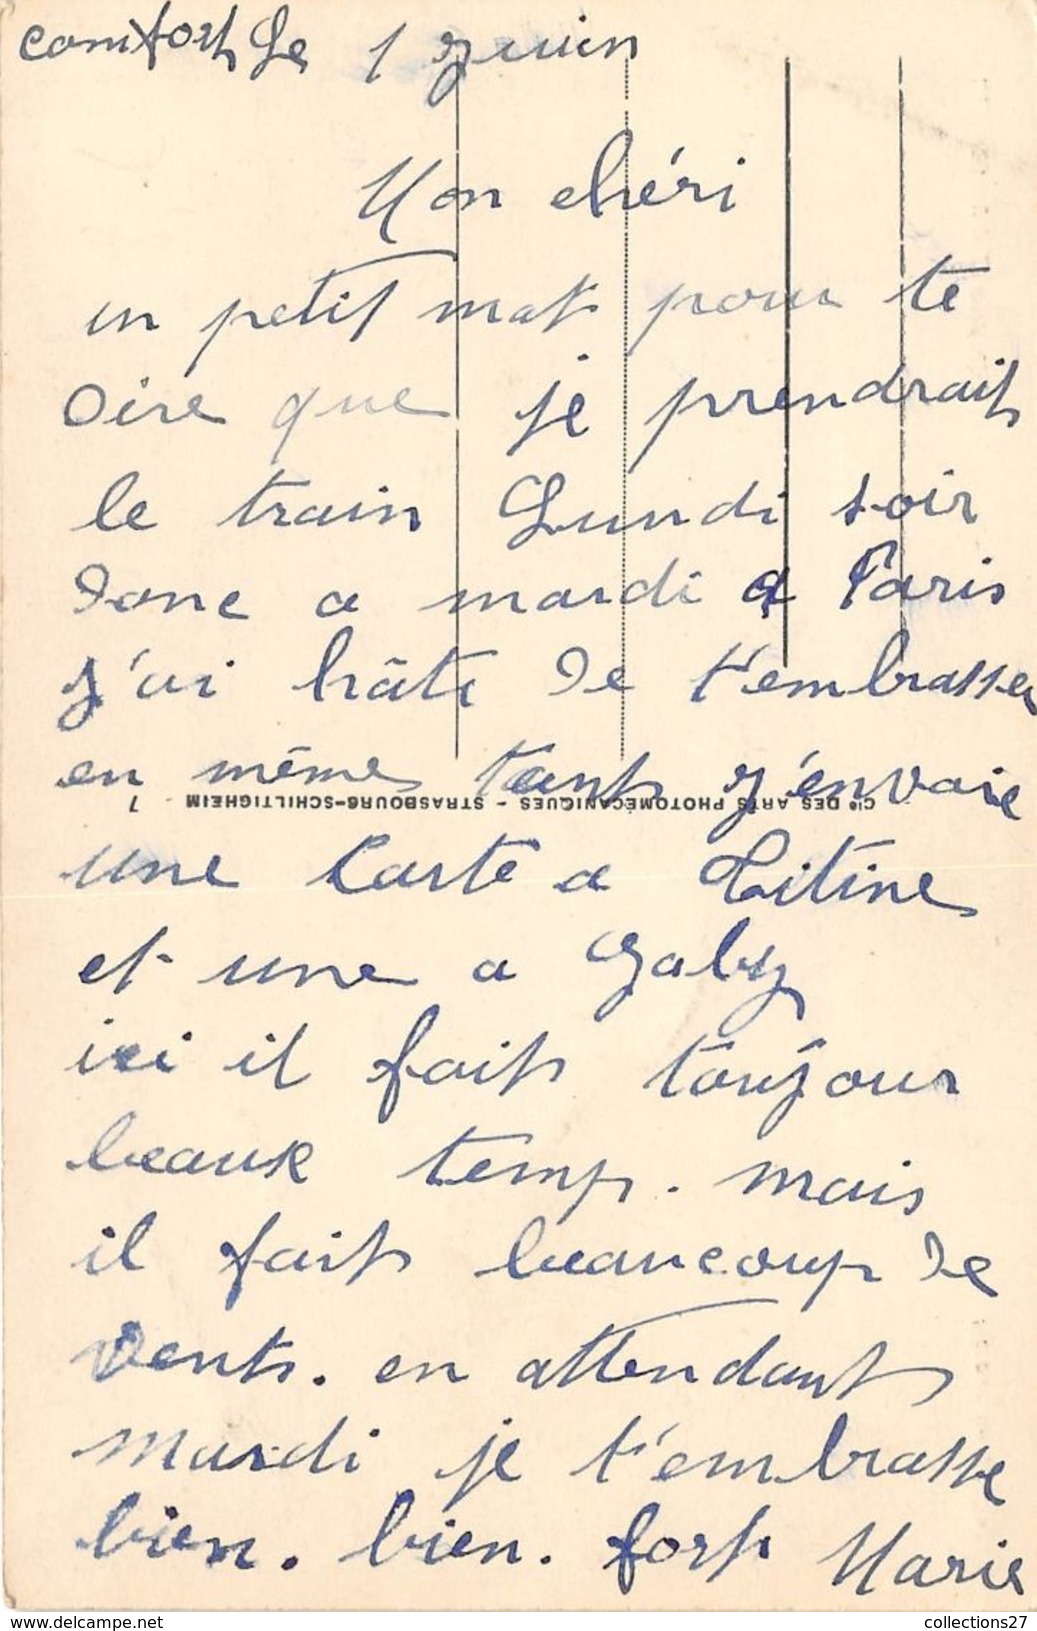 comfort le 1 juin
Mon chéri
un petit mot pour te
Dire que je prendrait
le train Lundi soir
Donc a mardi a Paris
j'ai hâte De t'embrasser
en même tant j'envoie
Cie DES ARTS PHOTOMÉCANIQUES - STRASBOURG-SCHILTIGHEIM 7
une Carte a Titine
et une a Gaby
ici il fait toujour
beaux temp. mais
il fait beaucoup De
vent. en attendant
mardi je t'embrasse
bien. bien. fort Marie
https://www.delcampe.net
collections27